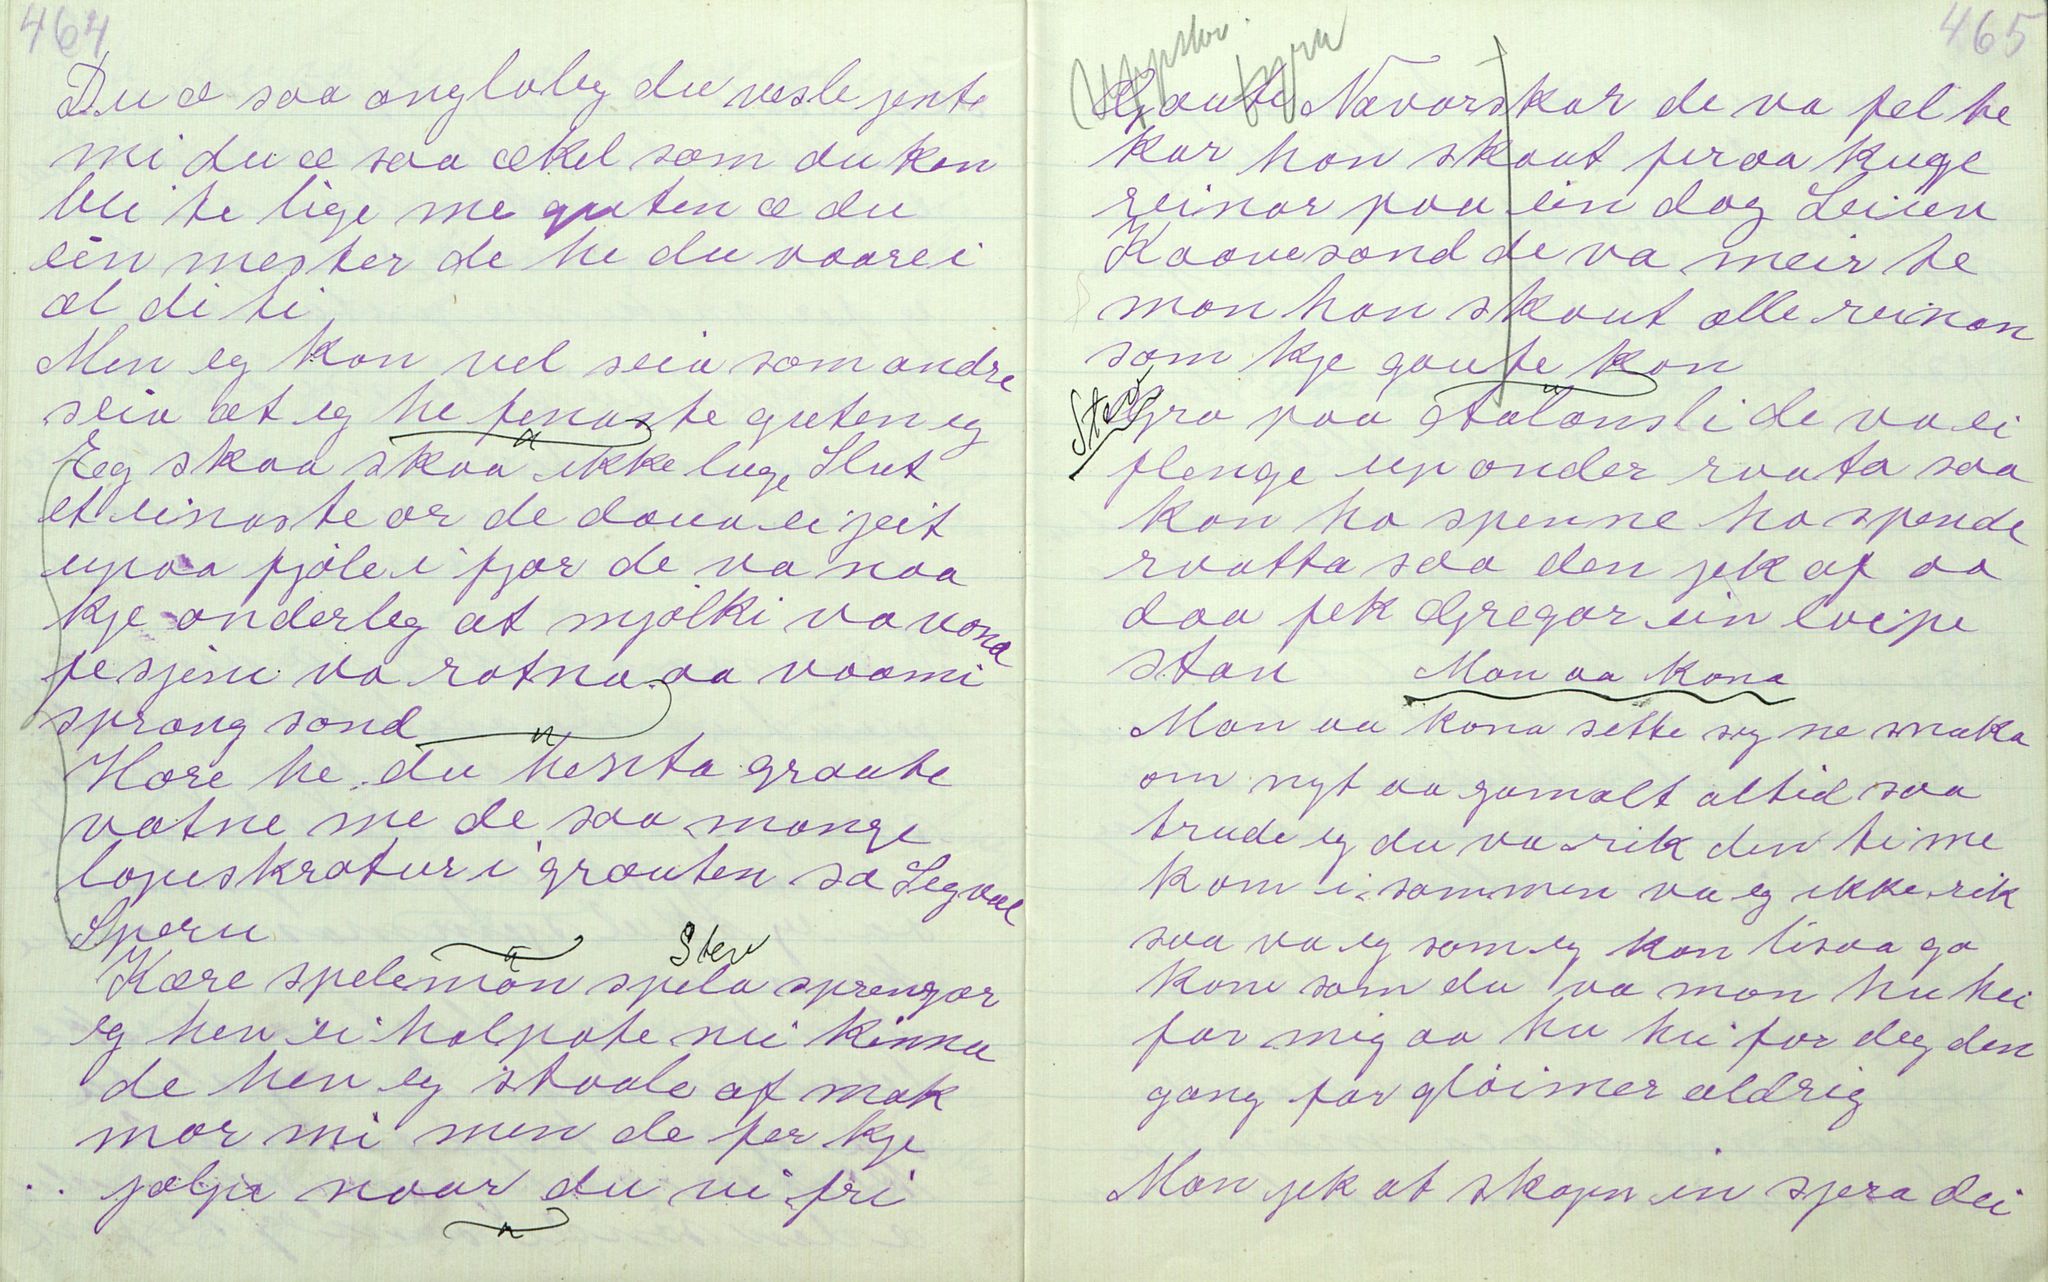 464
Du æ saa onglaleg du vesle jente
mi du æ saa ækel som du kan
bli te lige me guten æ du
ein mester de he du vaare i
al di ti
Men eg kan vel seia som andre
seia at eg he fenaste guten eg
Eeg skaa skaa ikke luge Slut
et einaste ær de doua ei jeit
upaa fjöle i fjor de va naa
kje onderleg at mjölki va vond
fe sjiru va rotna aa vaami
sprong sond
Kære he du henta graute
vatne me de saa mange
lopuskratur i grauten sa Segvæl
Speru
Kære spelemon spela sprengar
Stev
eg hev ei halpote nie kinnu
de hev eg stoole af mak
mor mi men de fer kje
jælpe naar du vi fri
465
Uppskr. fyrr
Gaute Nævorskar de va fel te
kar han skaut firaa kuge
reinar paa ein dag Leiuv
Kaavesond de va meir te
mon han skaut alle reinan
som kje gaute kon
Stev
Gro paa Stalansli de va ei
flenge up onder raata saa
kon ho spenne ho spende
raatta saa den jek af aa
daa fek Gregar ein leipe
stau
Mon aa Kona
Mon aa kona sette sig ne snaka
om nyt aa gamalt altid saa
trude eg du va rik den ti me
kom i sammen va eg ikke rik
saa va eg som eg kon lisaa go
kone som du va mon hu hei
for mig aa hu hei for deg den
gang for glöimer aldrig
Mon jek at skapn in sjera dei